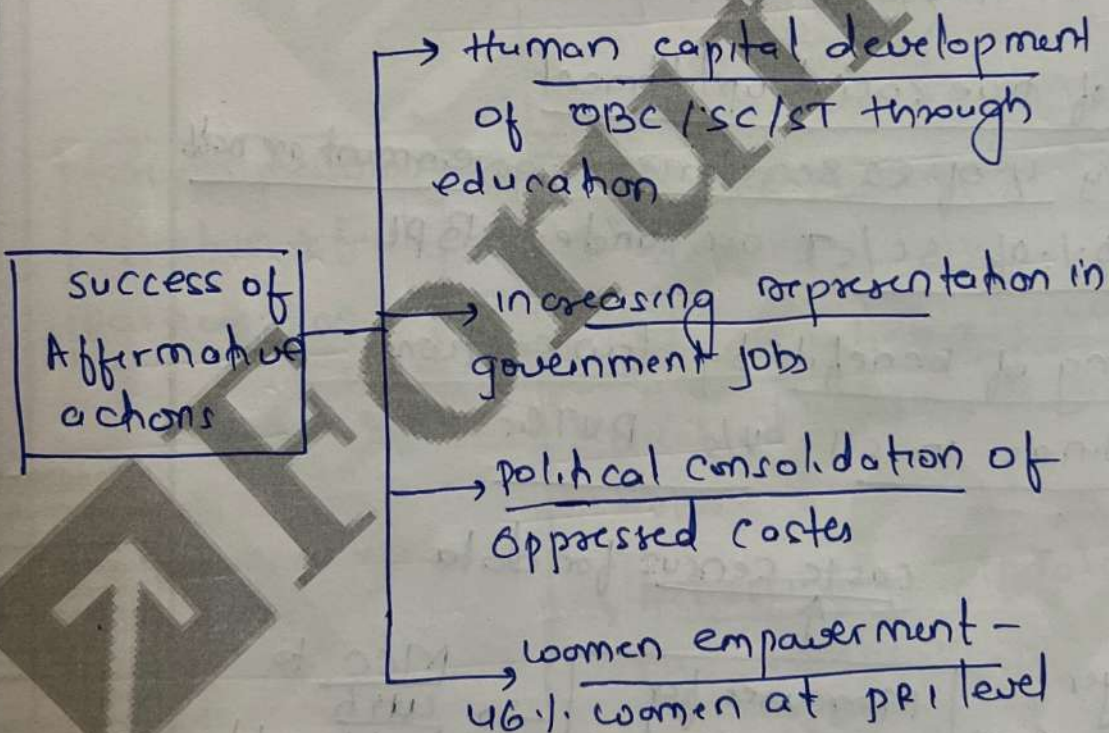 Success of
Affirmative
actions
→ Human capital development
of OBC/SC/ST through
education
→ increasing representation in
government jobs
→ political consolidation of
oppressed castes
→ women empowerment -
46% women at PRI level
Forum